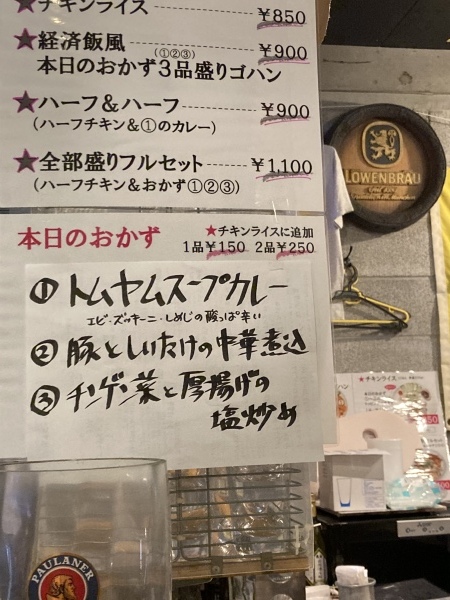 ★チキンライス ¥850
★経済飯風 (①②③) ¥900
本日のおかず3品盛りゴハン
★ハーフ&ハーフ ¥900
(ハーフチキン&①のカレー)
★全部盛りフルセット ¥1,100
(ハーフチキン&おかず①②③)
本日のおかず
★チキンライスに追加
1品¥150 2品¥250
① トムヤムスープカレー
エビ・ズッキーニ・しめじの酸っぱ辛い
② 豚としいたけの中華煮込
③ チンゲン菜と厚揚げの
塩炒め
LÖWENBRÄU
★チキンライス
PAULANER